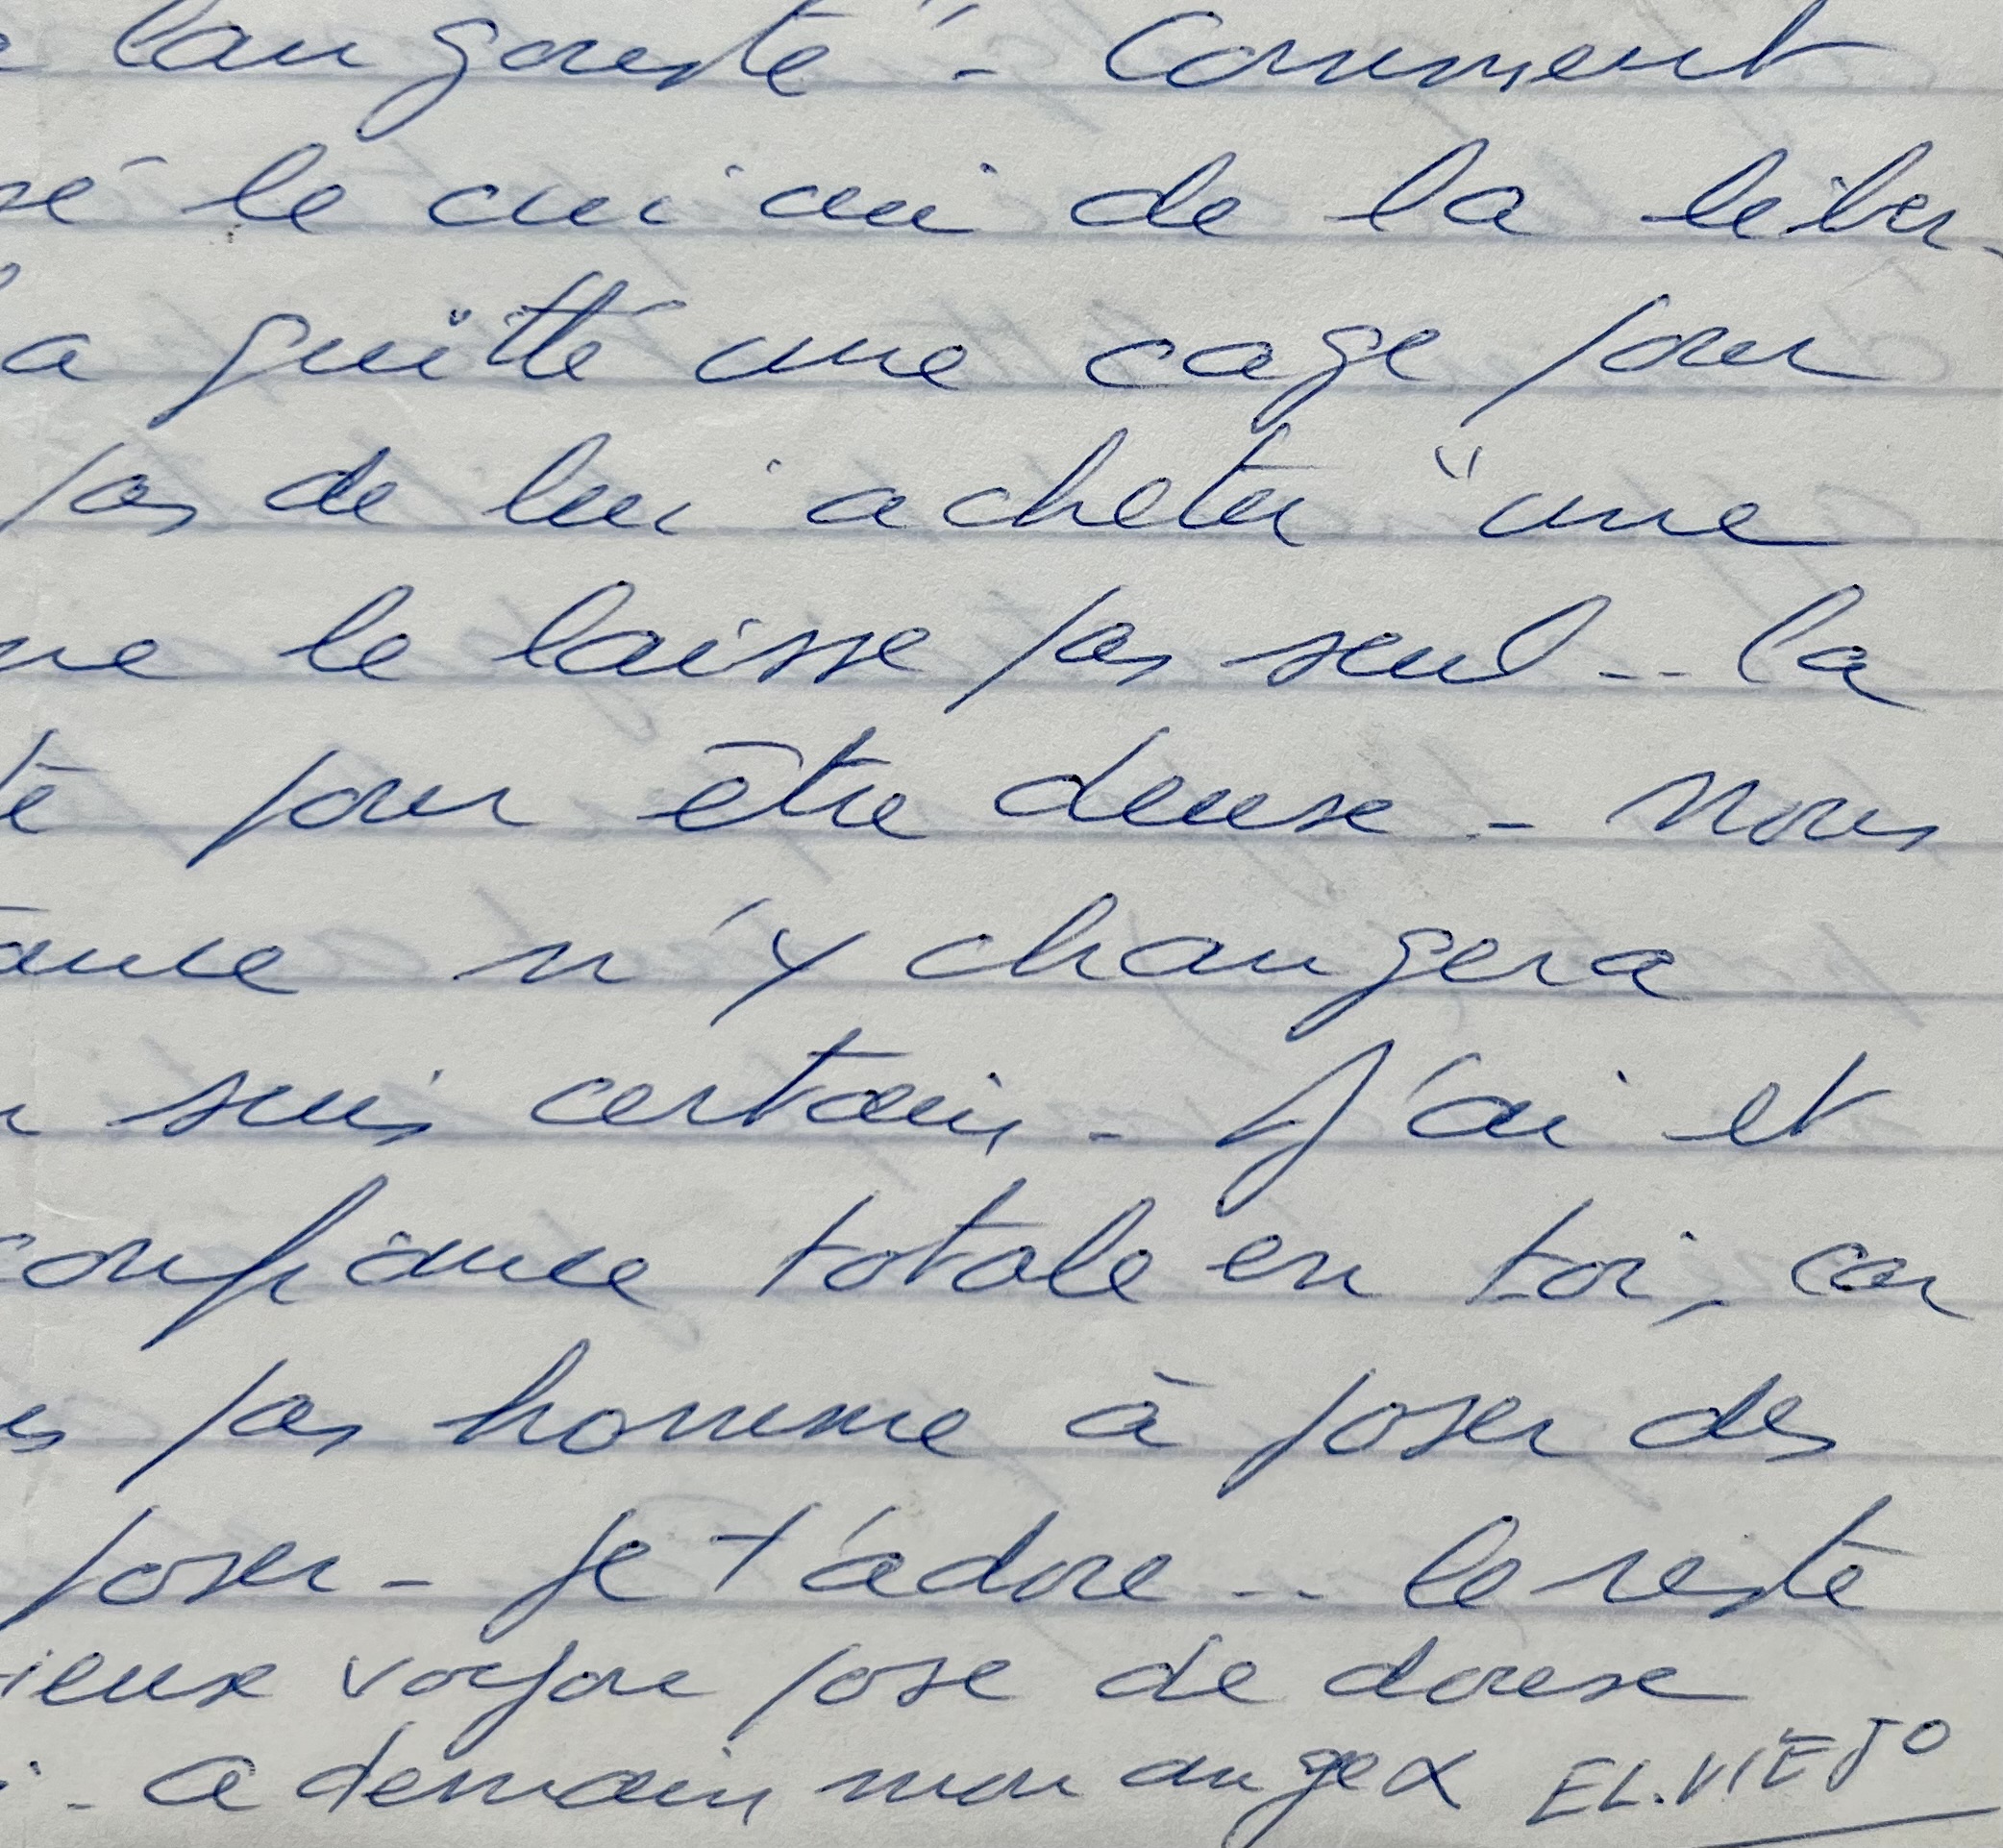 langouste" - Comment
sé le cui cui de la liber-
a quitté une cage pour
pas de lui acheter "une
ne le laisse pas seul.. la
té pour être deuse - nous
ance n'y changera
suis certain - J'ai et
confiance totale en toi, car
es pas homme à poser des
poser - je t'adore... le reste
ieux voyou pose de douse
- a demain mon ange x EL.VIEJO